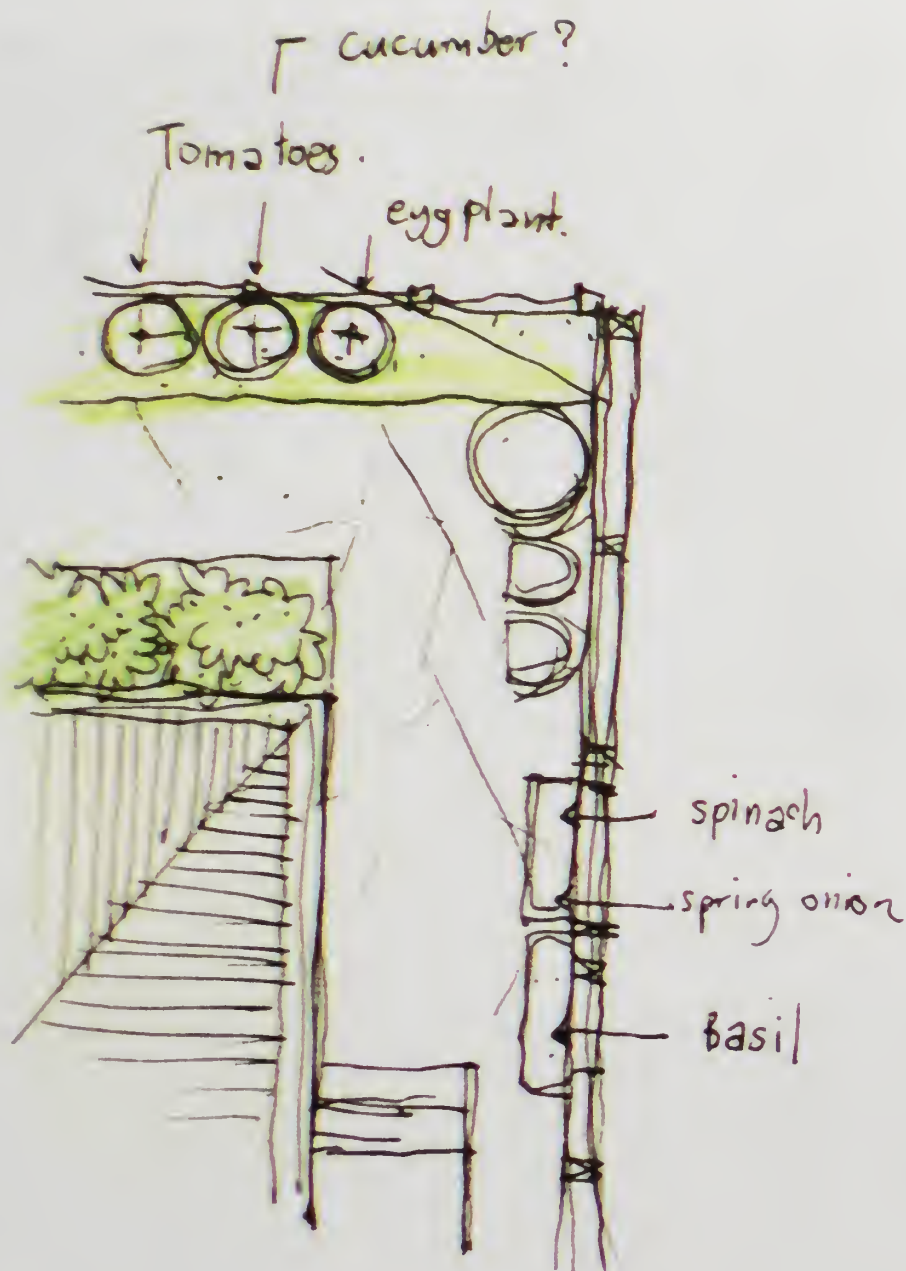 cucumber ?
Tomatoes.
eggplant.
spinach
spring onion
Basil